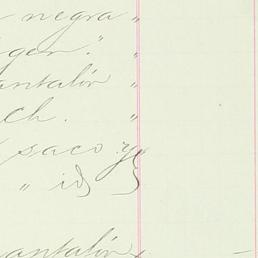 negra "
gen." "
antalón "
ch. "
saco. y
" id
antalón